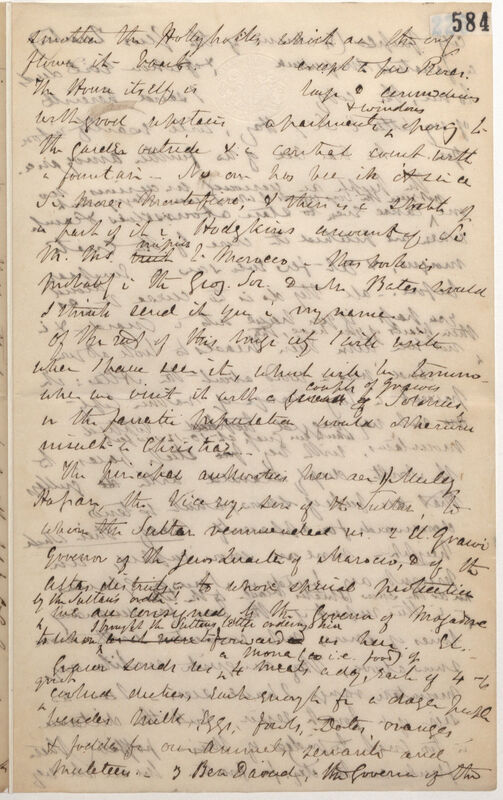 584
another the Hollyhocks, which are the only
flower it boasts. except a few Roses.
The House itself is large & commodious
with good upstairs apartments & windows opening to
the garden outside & a central court with
a fountain — No one has been in it since
Sir Moses Montefiore, & there is a sketch of
a part of it in Hodgkins account of Sir
M. M's mission to Morocco — this work is
probably in the Geog. Soc. & Mr Bates would
I think send it you in my name.
Of the rest of this huge city I will write
when I have seen it, which will be tomorrow
when we visit it with a couple of Grawi's Soldiers,
or the fanatic population would otherwise
insult a Christian
The principal authorities here are 1 Muley
Hassan the Viceroy son of the Sultan to
whom the Sultan recommended us 2 El Grawi
Governor of the Jews Quarter of Marocco, & of the
Atlas districts, to whose special protection
by the Sultan's orders
we are consigned, by the Governor of Mogador
to whom I brought the Sultans letter ordering
us here. El
Grawi sends us a mona (i.e. food) of
4 meals a day, each of 4-6
great cooked dishes, each enough for a dozen people
besides Milk Eggs, fowls, Dates oranges
& fodder for our animals, servants and
muleteers. 3 Ben Daoud, the Governor of the